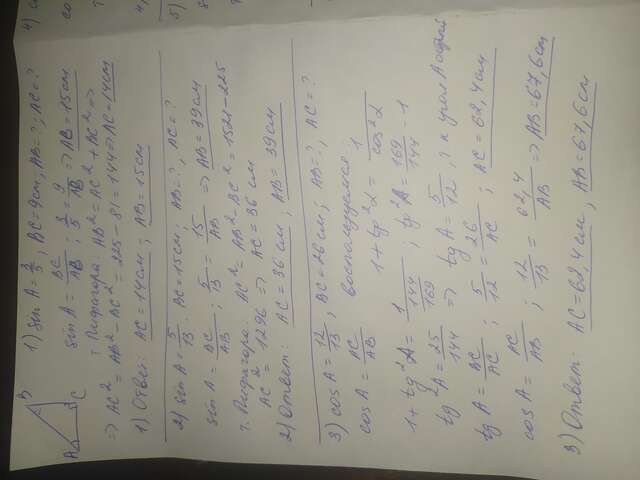 A B C
1) sin A = 3/5; BC = 9см; AB = ?; AC = ?
sin A = BC/AB; 3/5 = 9/AB => AB = 15 см
т. Пифагора: AB² = AC² + BC² =>
=> AC² = AB² - BC² = 225 - 81 = 144 => AC = 14см
1) Ответ: AC = 14см; AB = 15см
2) sin A = 5/13; BC = 15см; AB = ?, AC = ?
sin A = BC/AB; 5/13 = 15/AB => AB = 39см
т. Пифагора: AC² = AB² BC² = 1521 - 225
AC² = 1296 => AC = 36 см
2) Ответ: AC = 36 см; AB = 39 см
3) cos A = 12/13; BC = 26 см; AB = ?, AC = ?
cos A = AC/AB воспользуемся:
1 + tg²α = 1/cos²α
1 + tg²A = 1/(144/169); tg²A = 169/144 - 1
tg²A = 25/144 => tg A = 5/12, т к угол A острый
tg A = BC/AC; 5/12 = 26/AC; AC = 62,4см
cos A = AC/AB; 12/13 = 62,4/AB => AB = 67,6см
3) Ответ: AC = 62,4 см, AB = 67,6 см
4)
5)